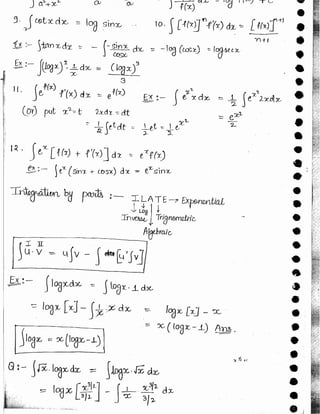 9. ∫cotx dx = log sinx
10. ∫[f(x)]ⁿ f'(x) dx = [f(x)]ⁿ⁺¹ / n+1
Ex:- ∫tanx dx = - ∫ -sinx/cosx dx = -log(cosx) = logsecx
Ex:- ∫(logx)² · 1/x dx = (logx)³/3
11. ∫e^f(x) f'(x) dx = e^f(x)
Ex:- ∫e^x² x dx = 1/2 ∫e^x² 2x dx
(or) put x² = t 2x dx = dt = e^x²/2
= 1/2 ∫e^t dt = 1/2 e^t = 1/2 e^x²
12. ∫e^x [f(x) + f'(x)] dx = e^x f(x)
ex:- ∫e^x (sinx + cosx) dx = e^x sinx
Integration by parts :- ILATE → Exponential
Log
Inverse Trigonometric
Algebraic
I II
∫u·v = u∫v - ∫[u'∫v]
Ex:- ∫logx dx = ∫logx · 1 dx
= logx [x] - ∫1/x · x dx = logx [x] - x
= x (logx - 1) Ans.
∫logx = x(logx - 1)
Q:- ∫√x · logx dx = ∫logx · √x dx
= logx [x^3/2 / 3/2] - ∫ 1/x · x^3/2 / 3/2 dx